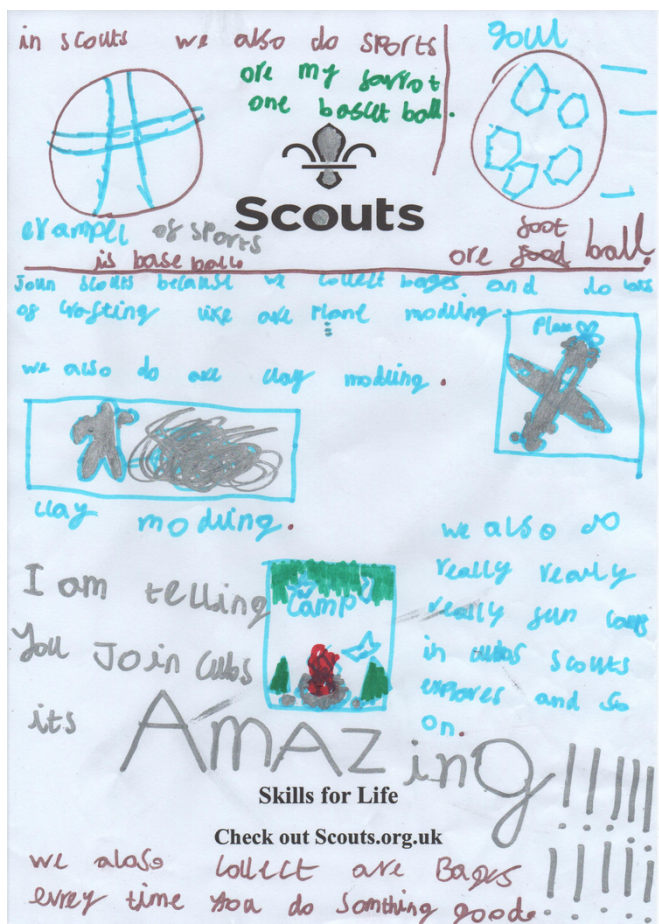 in scouts we also do sports
ore my farrot
one basket ball.
goul
Scouts
exampel of sports
is base ball
foot
ore food ball!
Join scouts because we collect bages and do lots
of crafting like are Plane modling.
Plane
we also do are clay modling.
clay modling.
we also do
really really
really fun camps
in cubs scouts
explores and so
on.
camp
I am telling
You Join cubs
its
AMAZing !!!!!
!!!!!
Skills for Life
Check out Scouts.org.uk
we alaso collect are Bages
evrey time you do somthing good.